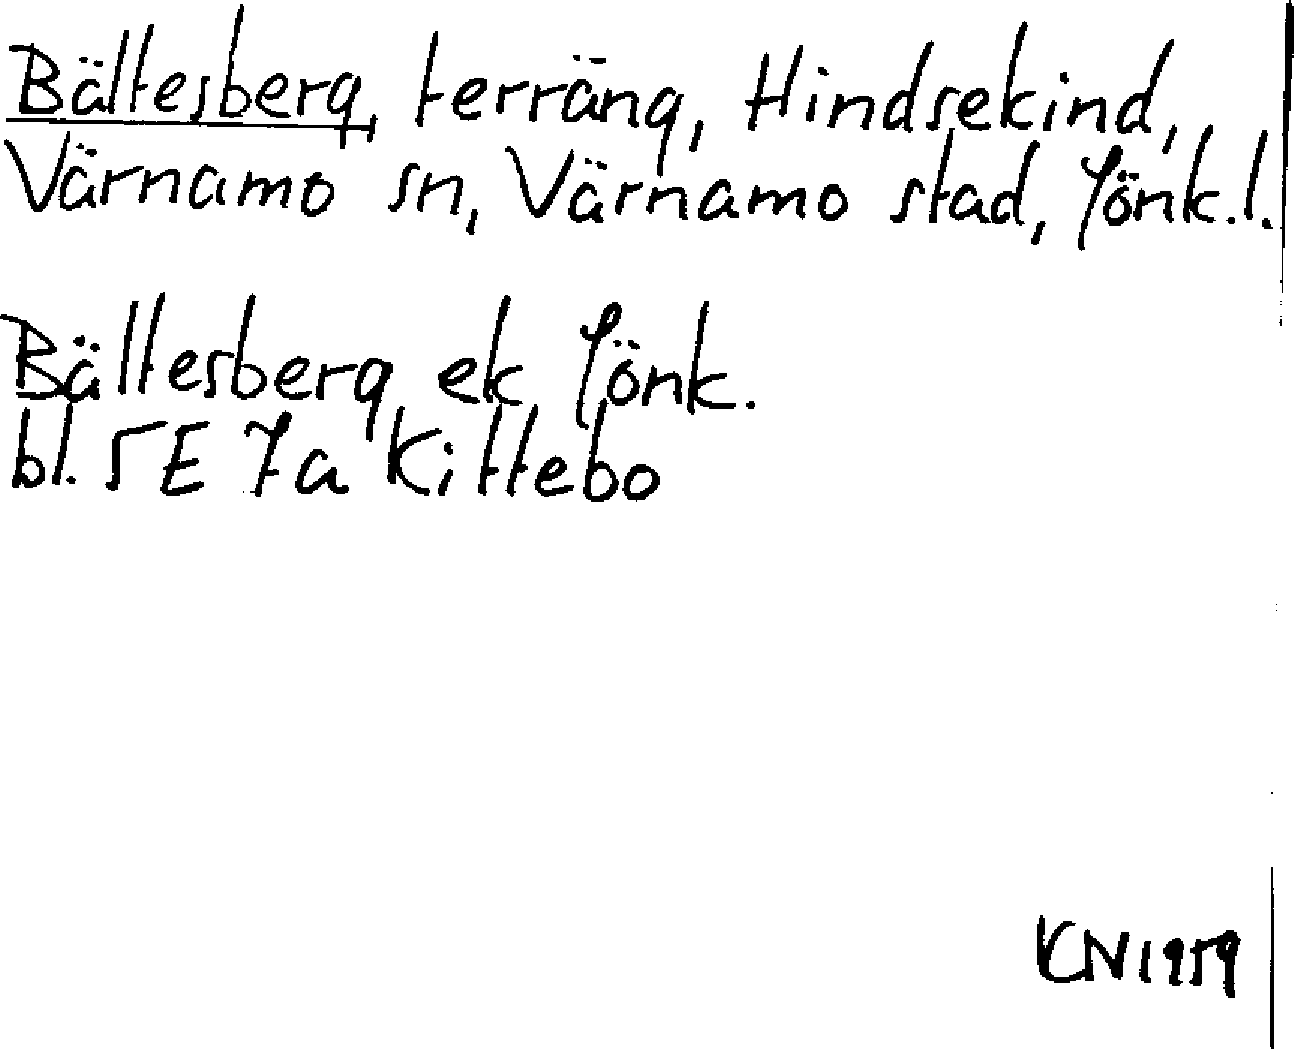 Bältesberg, terräng, Hindsekind,
Värnamo sn, Värnamo stad, Jönk.l.
Bältesberg ek Jönk.
bl. 5E 7a Kittebo
KN1959